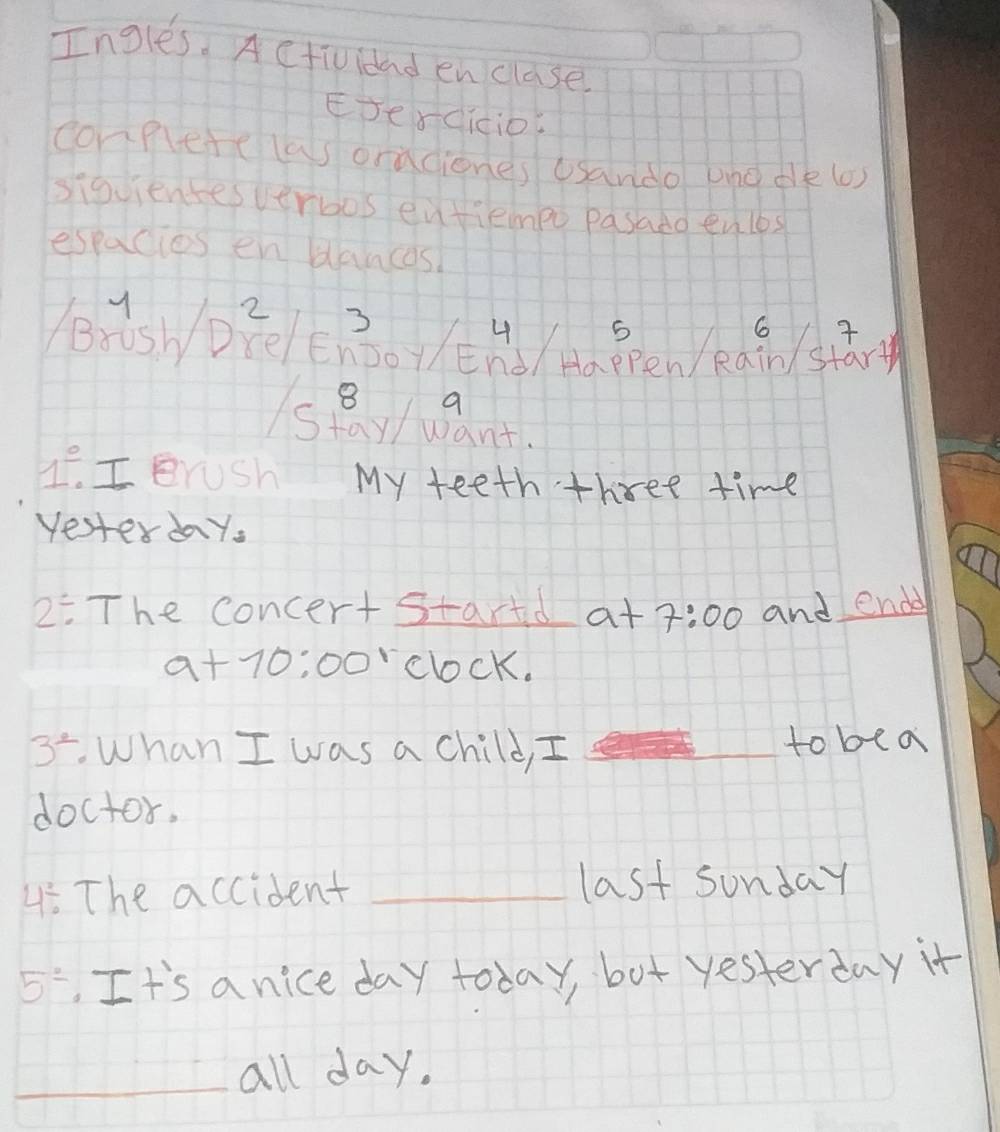 Inglés. Actividad en clase.
Ejercicio:
complete las oraciones usando uno de los
siguientes verbos en tiempo pasado en los
espacios en blancos.
1 2 3 4 5 6 7
/Brush/Dre/Enjoy/End/Happen/Rain/start/
8 9
/Stay/want.
1º. I Brush My teeth three time
yesterday.
2º. The concert Startd at 7:00 and endd
at 10:00'clock.
3º. Whan I was a child, I ____ to be a
doctor.
4º. The accident ____ last sunday
5º. It's a nice day today, but yesterday it
____ all day.